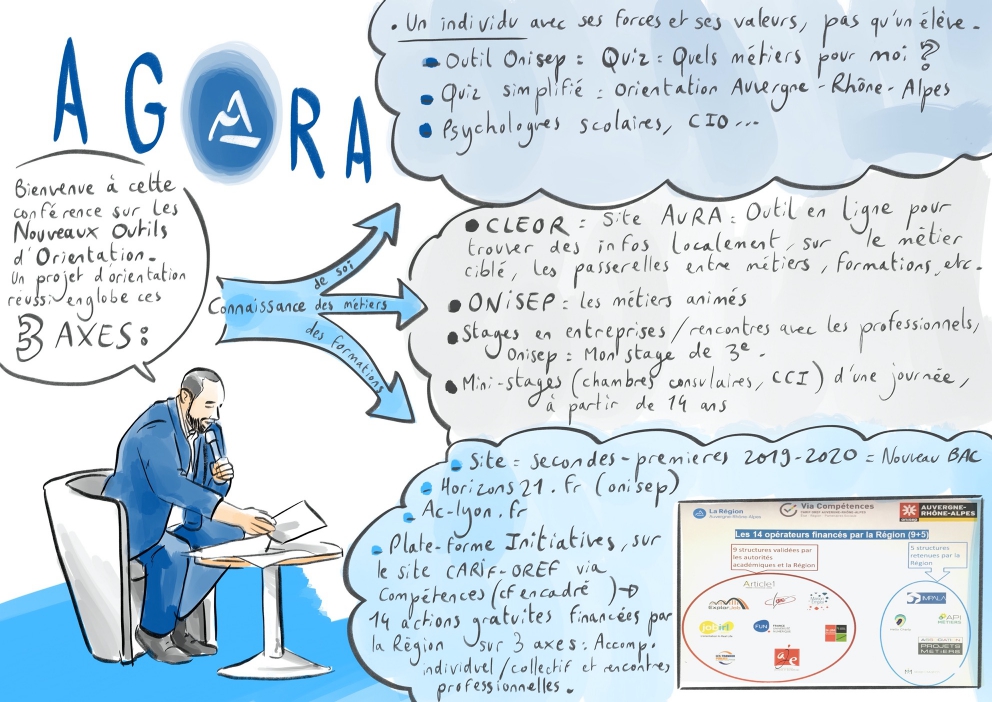 AGORA
Bienvenue à cette
conférence sur les
Nouveaux Outils
d'Orientation.
Un projet d'orientation
réussi englobe ces
3 AXES :
Connaissance
de soi
des métiers
des formations
. Un individu avec ses forces et ses valeurs, pas qu'un élève.
Outil Onisep : Quiz : Quels métiers pour moi ?
Quiz simplifié : Orientation Auvergne-Rhône-Alpes
Psychologues scolaires, CIO...
CLEOR : Site AURA : Outil en ligne pour
trouver des infos localement, sur le métier
ciblé, les passerelles entre métiers, formations, etc.
ONISEP : les métiers animés
Stages en entreprises / rencontres avec les professionnels,
Onisep : Mon stage de 3e.
Mini-stages (chambres consulaires, CCI) d'une journée,
à partir de 14 ans
Site : secondes-premieres 2019-2020 = Nouveau BAC
Horizons 21.fr (onisep)
Ac-lyon.fr
Plate-forme Initiatives, sur
le site CARIF-OREF via
Compétences (cf encadré) →
14 actions gratuites financées par
la Région sur 3 axes : Accomp.
individuel / collectif et rencontres
professionnelles.
La Région
Auvergne-Rhône-Alpes
Via Compétences
AUVERGNE-
RHÔNE-ALPES
Les 14 opérateurs financés par la Région (9+5)
9 structures validées par
les autorités
académiques et la Région
5 structures
retenues par la
Région
Article1
Explor Job
IMPALA
API
MÉTIERS
FUN
PROJETS
MÉTIERS